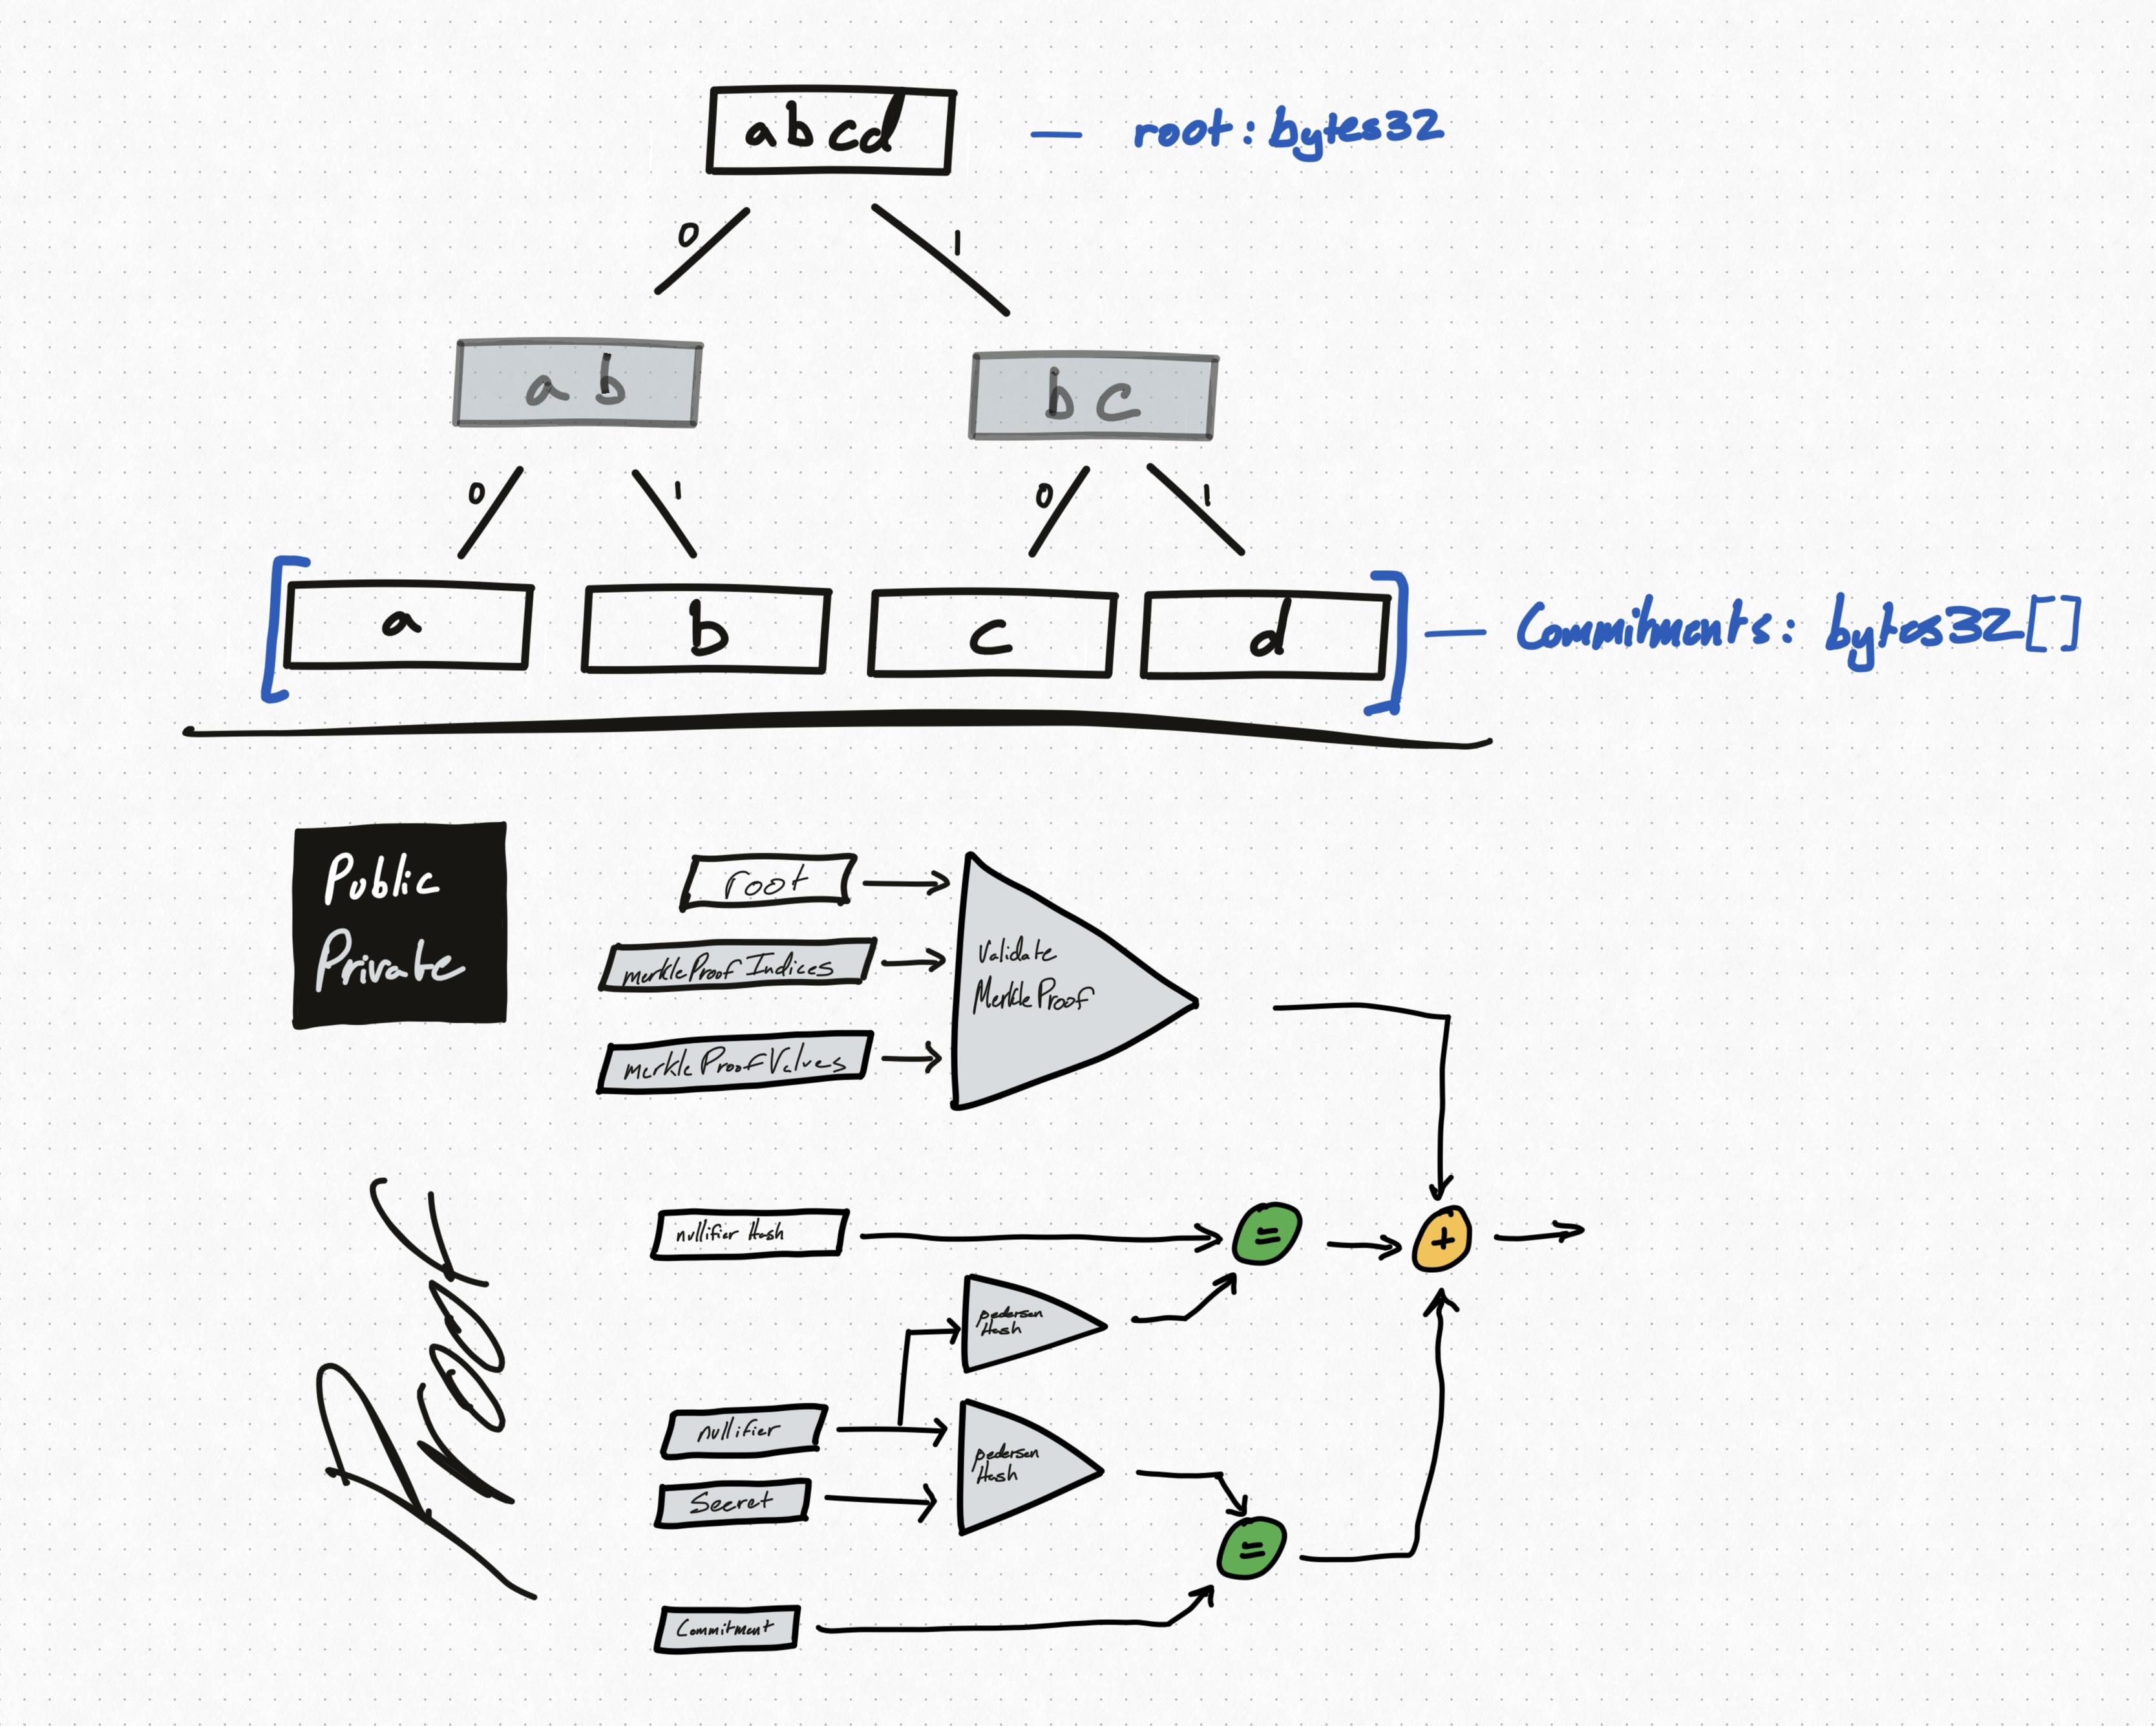 abcd — root: bytes32
0 1
ab bc
0 1 0 1
[ a b c d ] — Commitments: bytes32[]
Public
Private
root
merkleProofIndices
merkleProofValues
Validate
MerkleProof
Proof
nullifier Hash
=
+
pedersen
Hash
nullifier
Secret
pedersen
Hash
=
Commitment